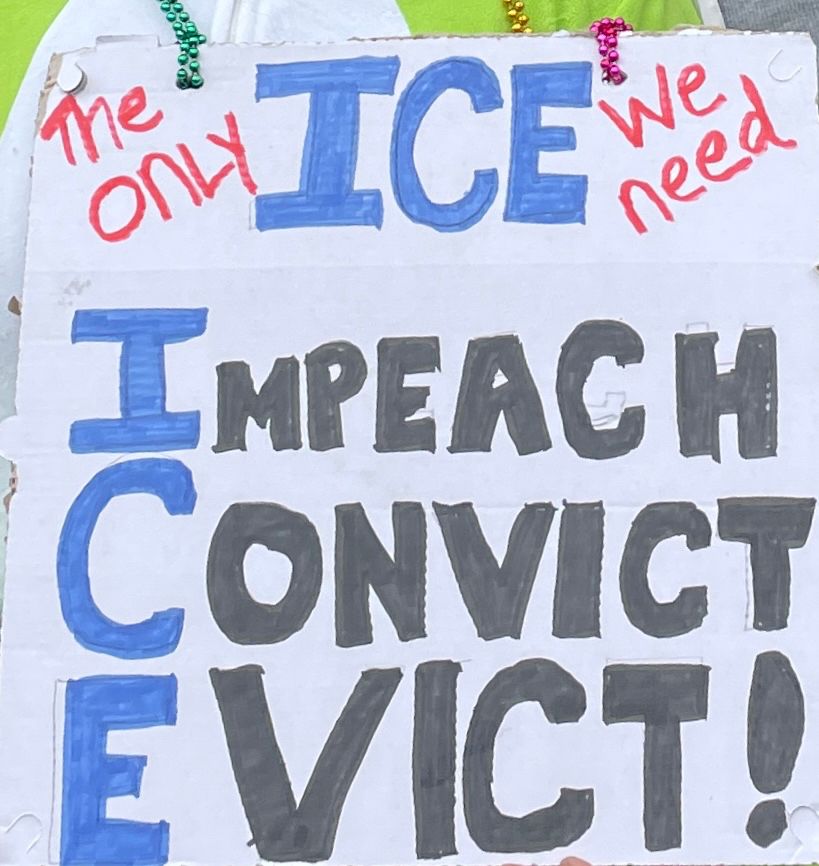 The ONLY ICE We need
IMPEACH
CONVICT
EVICT!